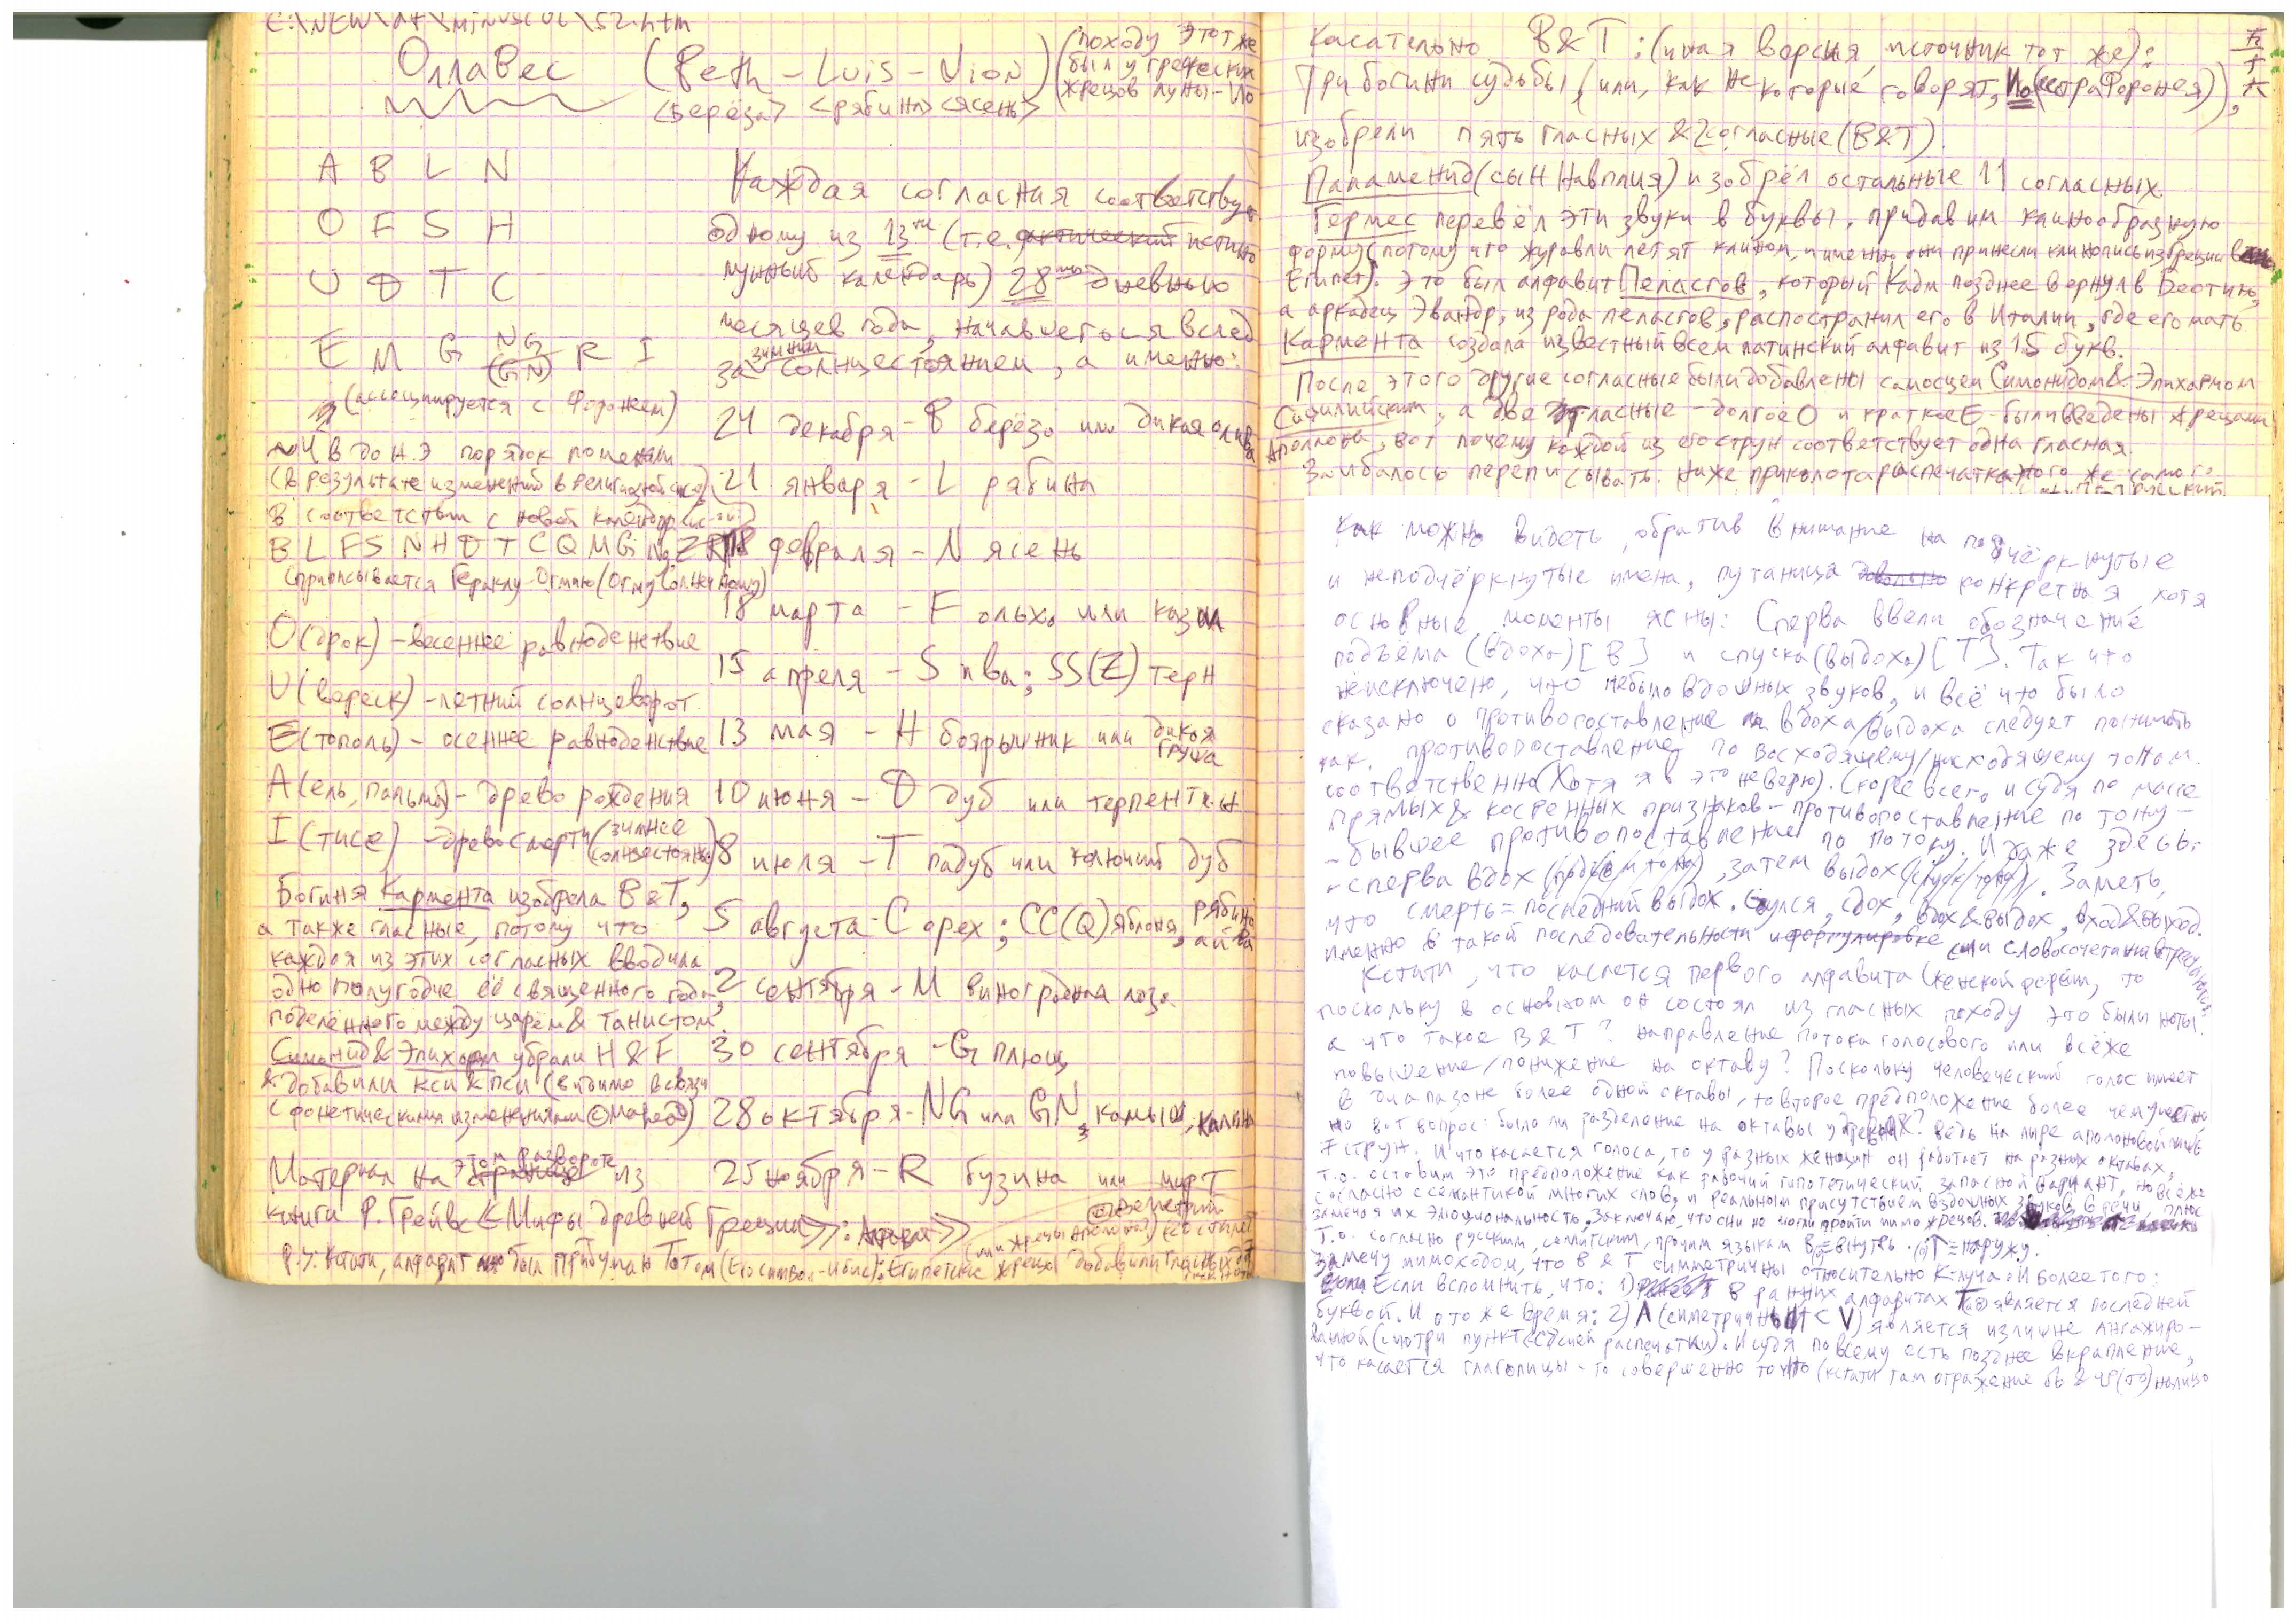 C:\NEW\Af\minuscul\52.htm
ОллаВес (Beth-Luis-Nion) (походу этот же был у греческих жрецов луны-Ио
<берёза> <рябина> <ясень>
A B L N
O F S H
U D T C
E M G NG (GN) R I
(ассоциируется с Форонеем)
~4 в до н.э порядок поменяли
(в результате изменений в религиозной)
в соответствии с новой
B L F S N H D T C Q M G Ng Z R
(приписывается Гераклу-Огмию (Огму Солнечному)
O (дрок) - весеннее равноденствие
U (вереск) - летний солнцеворот
E (тополь) - осеннее равноденствие
A (ель, пальма) - древо рождения
I (тисе) - древо смерти (зимнее солнцестояние)
Богиня Кармента изобрела B&T,
а также гласные, потому что
каждая из этих согласных вводила
одно полугодие её священного года,
поделённого между царём & Танистом.
Симонид & Эпихарм убрали H & F
& добавили кси & пси (видимо в связи
с фонетическими изменениями
Материал на этом развороте из
книги Р. Грейвс <<Мифы древней Греции>>
P.S. Кстати, алфавит был придуман Тотом (его символ-ибис): Египетские жрецы добавили гласных
Каждая согласная соответствует
одному из 13ти (т.е. истинно
лунный календарь) 28ми дневных
месяцев года, начавшегося вслед
за зимним солнцестоянием, а именно:
24 декабря - B берёза или дикая олива
21 января - L рябина
18 февраля - N ясень
18 марта - F ольха или кизил
15 апреля - S ива; SS(Z) терн
13 мая - H боярышник или дикая груша
10 июня - D дуб или терпентин
8 июля - T падуб или колючий дуб
5 августа - C орех; CC(Q) яблоня, рябина, айва
2 сентября - M виноградная лоза
30 сентября - G плющ
28 октября - NG или GN, камыш, калина
25 ноября - R бузина или мирт
Касательно B&T: (иная версия, источник тот же):
Три богини судьбы (или, как некоторые говорят, Ио (сестра Форонея)),
изобрели пять гласных & 2 согласные (B&T).
Паламенид (сын Навплия) изобрёл остальные 11 согласных.
Гермес перевёл эти звуки в буквы, придав им клинообразную
форму (потому что журавли летят клином, и именно они принесли клинопись из Греции в
Египет). Это был алфавит Пеласгов, который Кадм позднее вернул в Беотию,
а аркадец Эвандр, из рода пеласгов, распостранил его в Италии, где его мать
Кармента создала известный всем латинский алфавит из 15 букв.
После этого другие согласные были добавлены самосцем Симонидом & Эпихармом
Сицилийским; а две гласные - долгое О и краткое Е были введены жрецами
Аполлона, вот почему каждой из его струн соответствует одна гласная.
Заибалось переписывать. Ниже приколота распечатка того же самого.
Как можно видеть, обратив внимание на подчёркнутые
и неподчёркнутые имена, путаница конкретная, хотя
основные моменты ясны: Сперва ввели обозначение
подъёма (вдоха) [B] и спуска (выдоха) [T]. Так что
неисключено, что небыло вдошных звуков, и всё что было
сказано о противопоставление вдоха/выдоха следует понимать
как противопоставление по восходящему/нисходящему тонам
соответственно (Хотя я в это неверю). Скорее всего, и судя по массе
прямых & косвенных признаков - противопоставление по тону -
- бывшее противопоставление по потоку. И даже здесь:
- сперва вдох (подъём тона), затем выдох (спуск тона). Заметь,
что смерть = последний выдох. сдох, вдох & выдох, вход & выход.
именно в такой последовательности эти словосочетания
Кстати, что касается первого алфавита женской
поскольку в основном он состоял из гласных походу это были ноты.
а что такое B & T? направление потока голосового или всёже
повышение/понижение на октаву? Поскольку человеческий голос имеет
в диапазоне более одной октавы, то второе предположение более чем уместно,
но вот вопрос: было ли разделение на октавы у древних? ведь на лире аполоновой
7 струн. И что касается голоса, то у разных женщин он работает на разных октавах,
т.о. оставим это предположение как рабочий гипотетический запасной вариант, но всёже
согласно с семантикой многих слов, и реальным присутствием вздошных звуков в речи, плюс
замечая их эмоциональность, заключаю, что они не могли пройти мимо жрецов.
Т.о. согласно русским, семитским, прочим языкам B = внутрь, T = наружу.
Замечу мимоходом, что B & T симметричны относительно Ключа. И более того:
Если вспомнить, что: 1) В ранних алфавитах T является последней
буквой. И в то же время: 2) A (симметричный < V) является излишне ангажиро-
ванной (смотри пункт распечатки). И судя по всему есть позднее вкрапление,
что касается глаголицы - то совершенно точно (кстати там отражение налицо